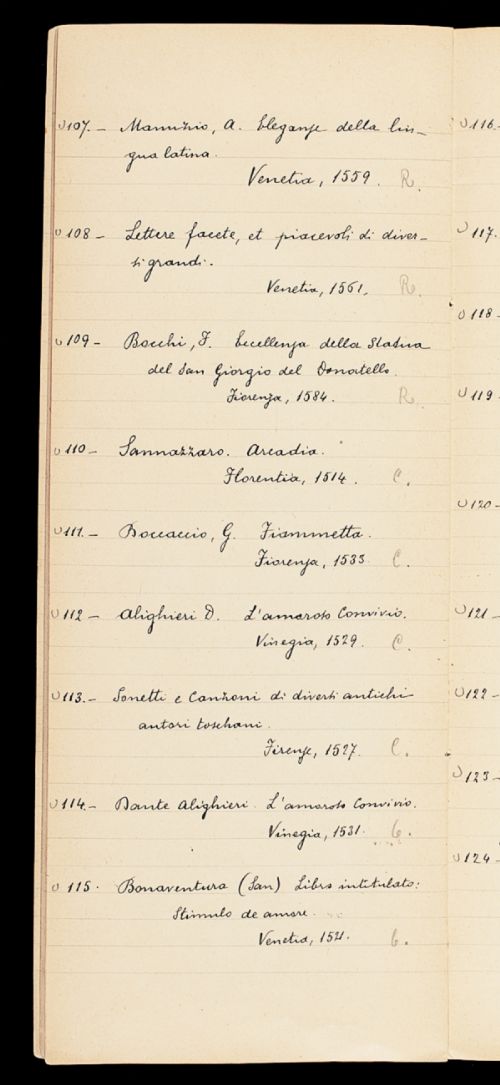 107. - Manuzio, A. Eleganze della lin-
gua latina.
Venetia, 1559. R.
108 - Lettere facete, et piacevoli di diver-
si grandi.
Venetia, 1561. R.
109 - Bocchi, F. Eccellenza della Statua
del San Giorgio del Donatello.
Fiorenza, 1584. R.
110 - Sannazzaro. Arcadia.
Florentia, 1514. C.
111. - Boccaccio, G. Fiammetta.
Fiorenza, 1533. C.
112 - Alighieri D. L'amoroso Convivio.
Vinegia, 1529. C.
113. - Sonetti e Canzoni di diversi antichi
autori toschani.
Firenze, 1527. C.
114. - Dante Alighieri. L'amoroso Convivio.
Vinegia, 1531. C.
115. Bonaventura (San) Libro intitulato:
Stimulo de amore.
Venetia, 1521.
116.
117.
118.
119
120 -
121 -
122 -
123 -
124 -